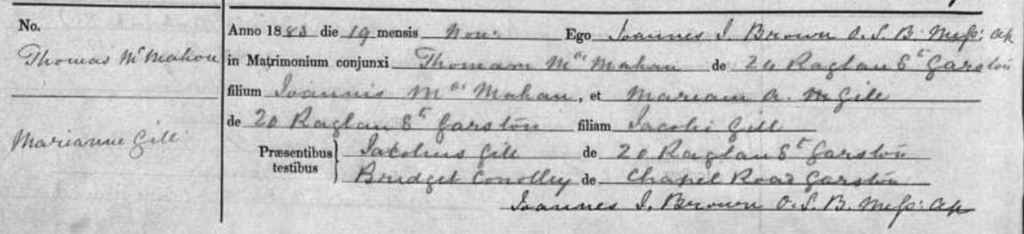 No.
Thomas Mc Mahon
Marianne Gill
Anno 1883 die 19 mensis Nov: Ego Joannes I. Brown O. S. B. Miss: Ap
in Matrimonium conjunxi Thomam Mac Mahan de 20 Raglan St Garston
filium Joannis Mac Mahan, et Mariam A. Gill
de 20 Raglan St Garston filiam Jacobi Gill
Præsentibus testibus Jacobus Gill de 20 Raglan St Garston
Bridget Conolley de Chapel Road Garston
Joannes I. Brown O. S. B. Miss: Ap